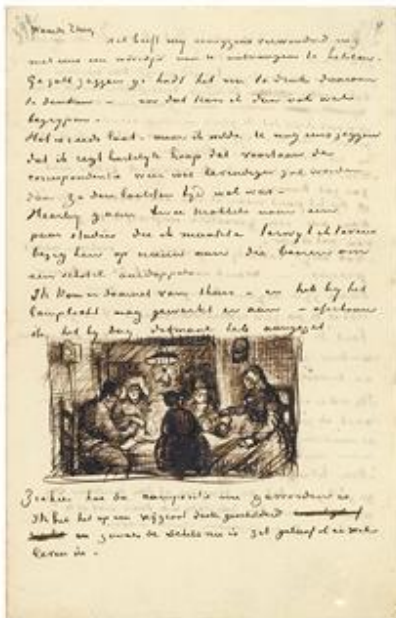 Waarde Theo,
Het heeft mij eenigzins verwonderd nog
niet eens een woordje van U ontvangen te hebben.
Ge zult zeggen ge hadt het te druk daaraan
te denken – en dat kan ik dan ook wel
begrijpen.
Het is reeds laat – maar ik wilde U nog eens zeggen
dat ik regt hartelijk hoop dat voortaan de
correspondentie weer wat levendiger zal worden
dan ze den laatsten tijd wel was –
Hierbij gaan twee krabbels naar een
paar studies die ik maakte terwijl ik tevens
bezig ben op nieuw aan die boeren om
een schotel aardappels
Ik kom er daarnet van thuis – en heb bij het
lamplicht nog gewerkt er aan – ofschoon
ik het bij dag ditmaal heb aangezet
Ziehier hoe de compositie nu geworden is.
Ik heb het op een vrij groot doek geschilderd
en zooals de schets nu is zit geloof ik er wel
leven in –